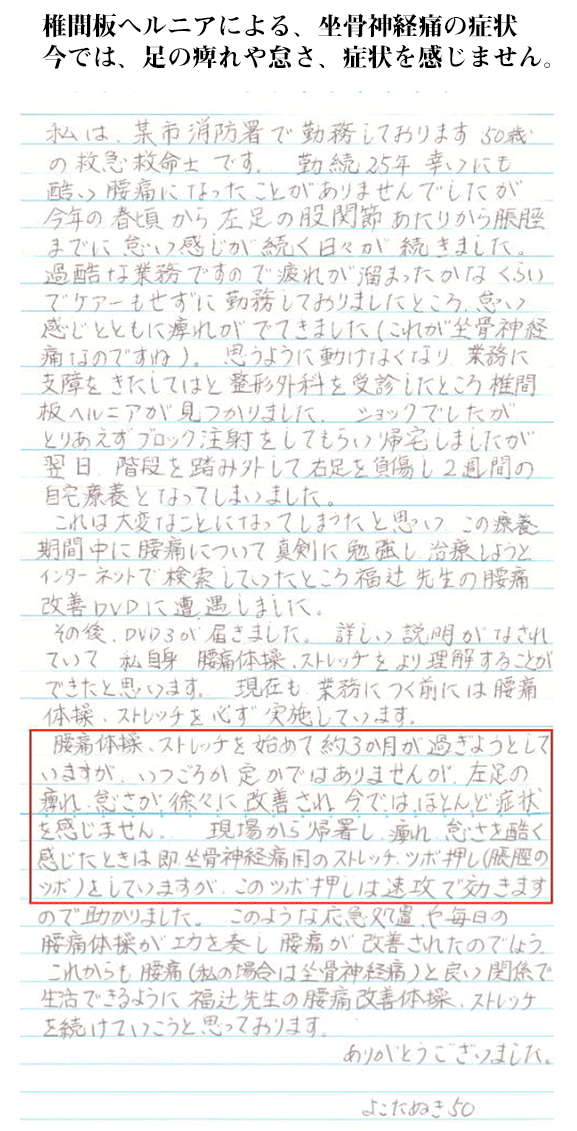 椎間板ヘルニアによる、坐骨神経痛の症状
今では、足の痺れや怠さ、症状を感じません。
私は、某市消防署で勤務しております50歳
の救急救命士です。 勤続25年 幸いにも
酷い腰痛になったことがありませんでしたが
今年の春頃から左足の股関節あたりから脹脛
までに怠い感じが続く日々が続きました。
過酷な業務ですので疲れが溜まったかなくらい
でケアーもせずに勤務しておりましたところ、怠い
感じとともに痺れがでてきました(これが坐骨神経
痛なのですね)。 思うように動けなくなり、業務に
支障をきたしてはと整形外科を受診したところ椎間
板ヘルニアが見つかりました。 ショックでしたが
とりあえずブロック注射をしてもらい帰宅しましたが
翌日、階段を踏み外して右足を負傷し2週間の
自宅療養となってしまいました。
これは大変なことになってしまうたと思い、この療養
期間中に腰痛について真剣に勉強し、治療しようと
インターネットで検索していったところ福辻先生の腰痛
改善DVDに遭遇しました。
その後、DVD3が届きました。 詳しい説明がなされ
ていて 私自身 腰痛体操、ストレッチをより理解することが
できたと思います。 現在も、業務につく前には腰痛
体操、ストレッチを必ず実施しています。
腰痛体操、ストレッチを始めて約3か月が過ぎようとして
いますが、いつごろか定かではありませんが、左足の
痺れ、怠さが徐々に改善され、今では、ほとんど症状
を感じません。 現場から帰署し、痺れ、怠さを酷く
感じたときは即、坐骨神経痛用のストレッチ、ツボ押し(脹脛の
ツボ)をしていますが、このツボ押しは速攻で効きます
ので助かりました。 このような応急処置や毎日の
腰痛体操がエ力を奏し腰痛が改善されたのでしょう。
これからも腰痛(私の場合は坐骨神経痛)と良い関係で
生活できるように福辻先生の腰痛改善体操、ストレッチ
を続けていこうと思っております。
ありがとうございました。
よこたぬき50